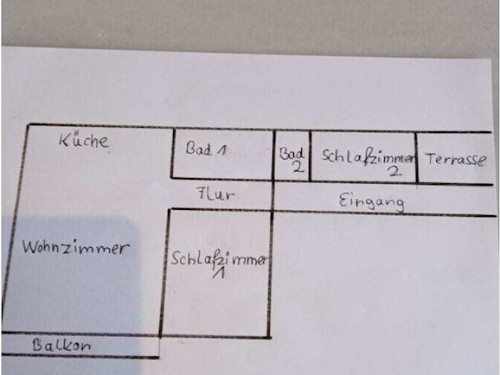 Küche
Bad 1
Bad
2
Schlafzimmer
2
Terrasse
Flur
Eingang
Wohnzimmer
Schlafzimmer
1
Balkon